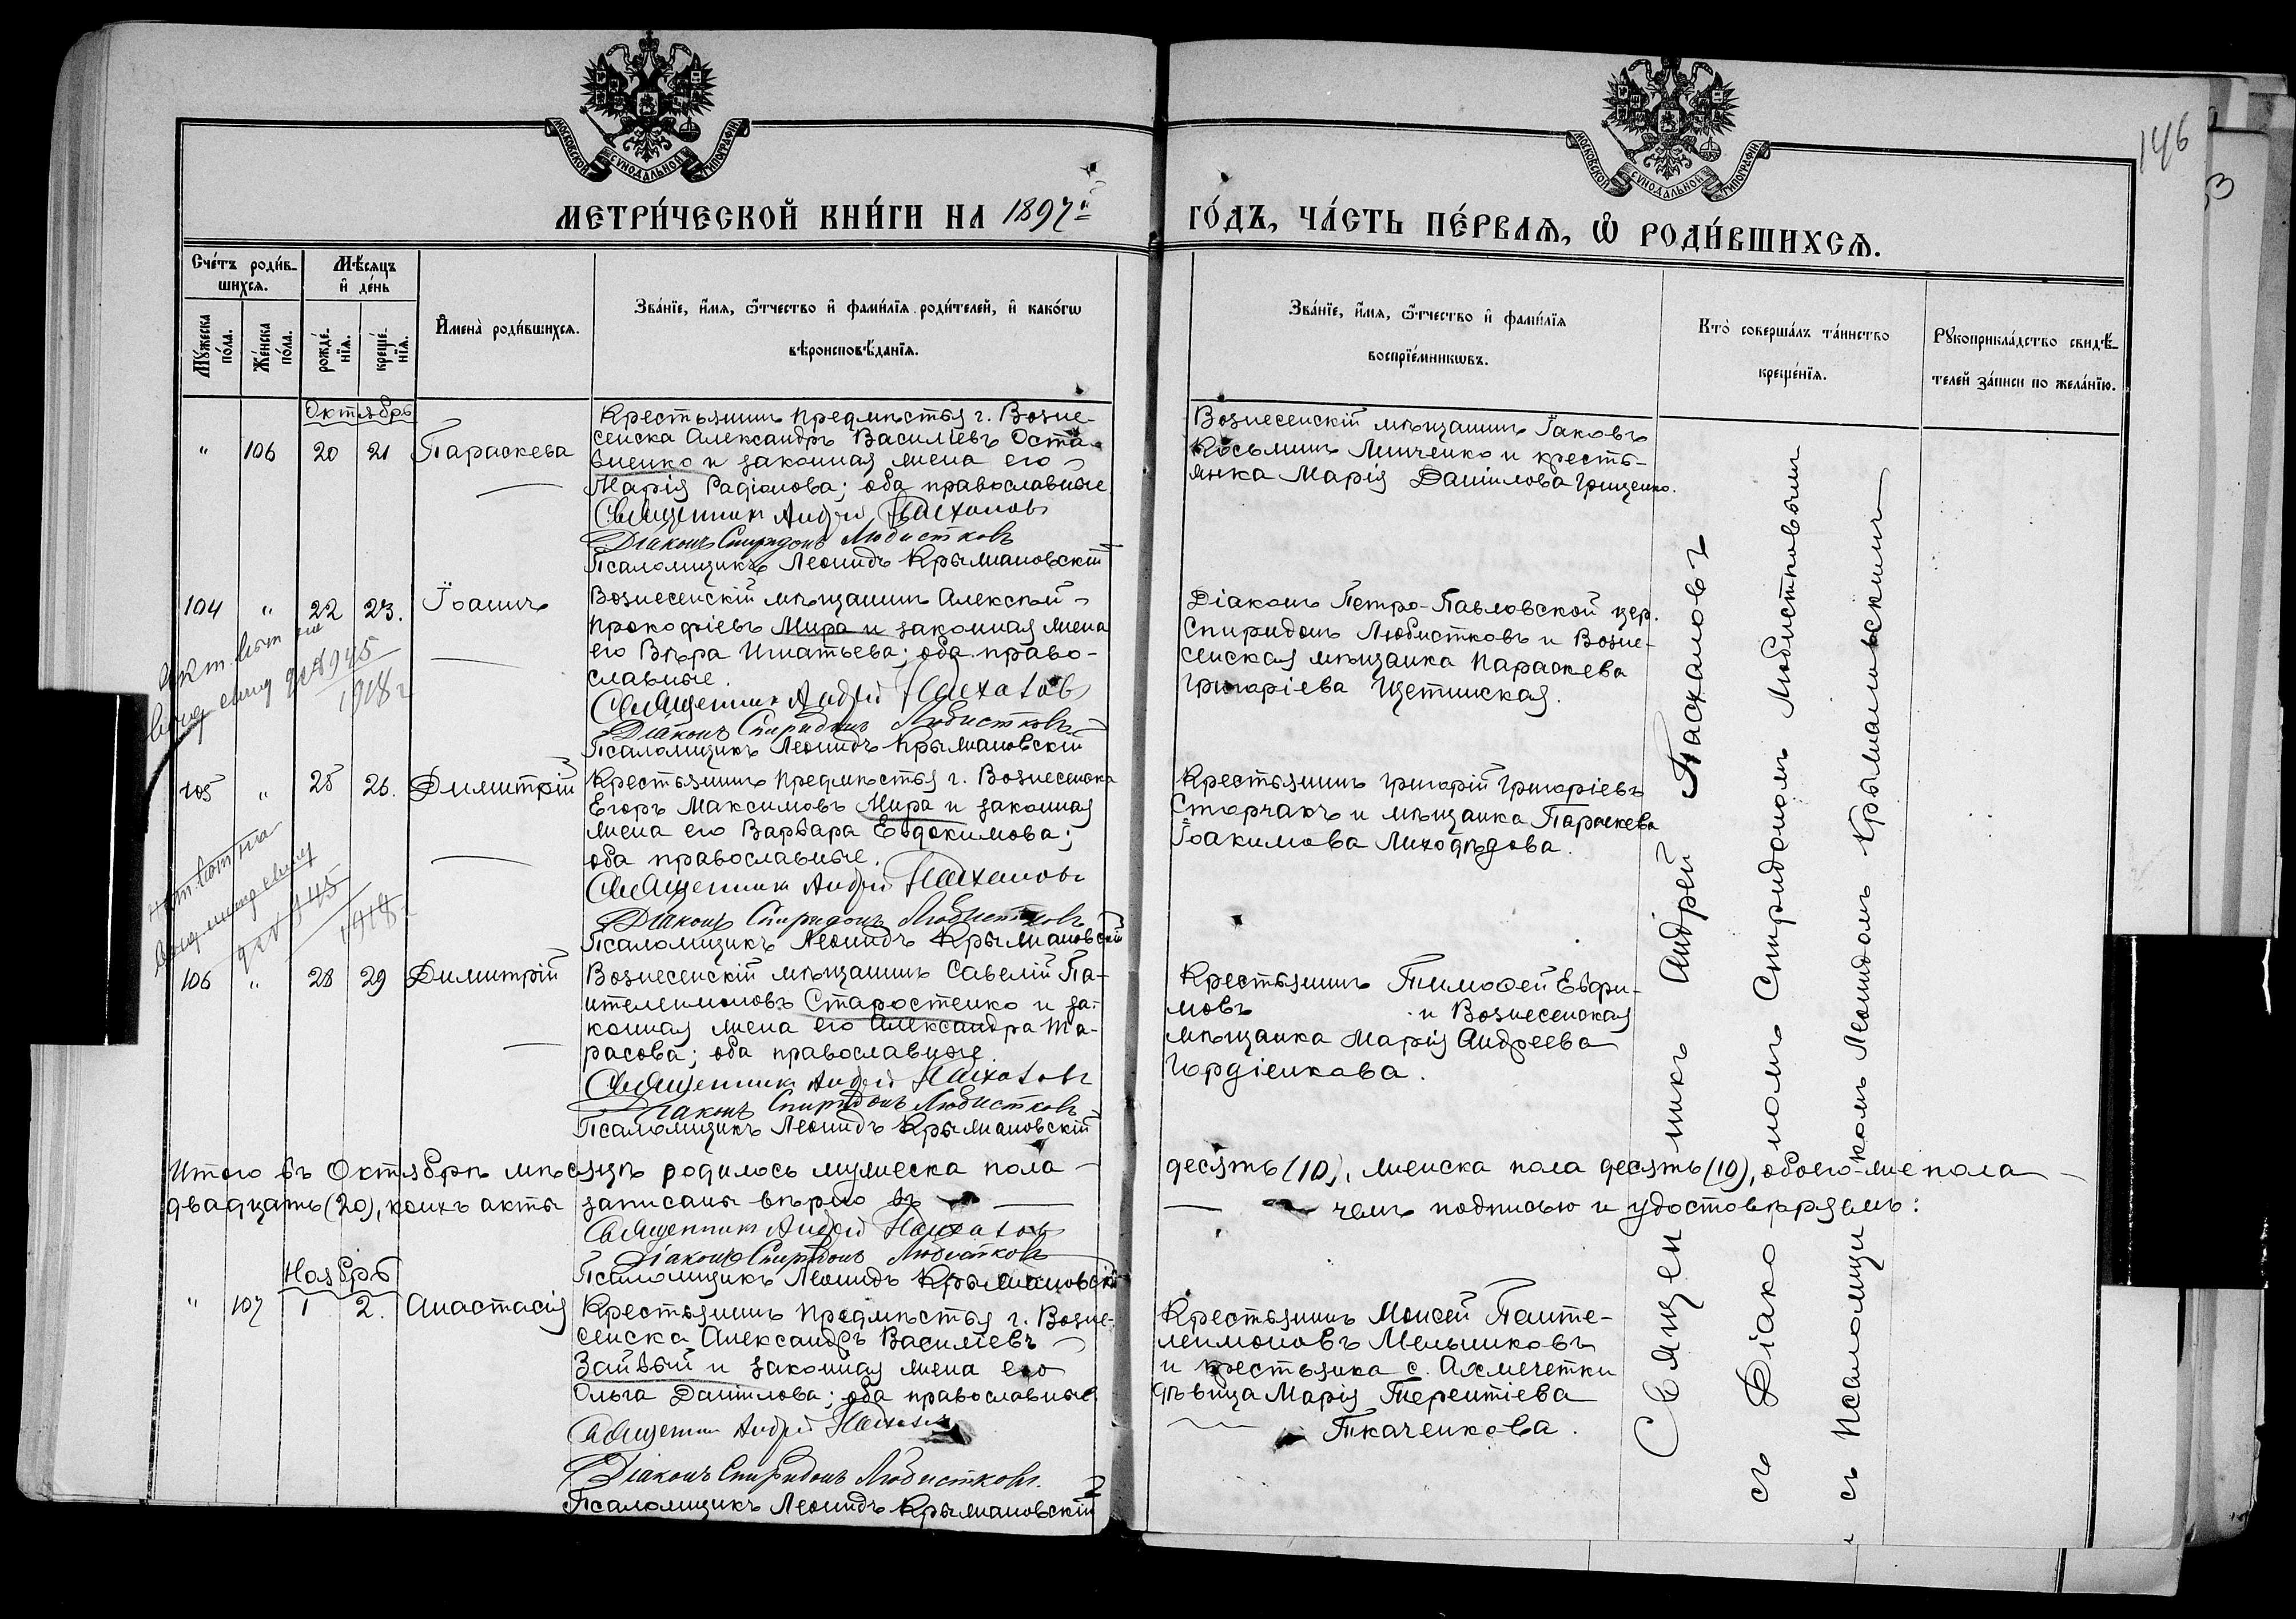 146
МОСКОВСКОЙ СѴНОДАЛЬНОЙ ТИПОГРАФІИ
МОСКОВСКОЙ СѴНОДАЛЬНОЙ ТИПОГРАФІИ
МЕТРИ́ЧЕСКОЙ КНИ́ГИ НА 1897й
ГО́ДЪ, ЧА́СТЬ ПЕ́РВАѦ, Ѡ҆ РОДИ́ВШИХСѦ.
Сче́тъ роди́в-
шихсѧ.
Мꙋ́жеска
по́ла.
Же́нска
по́ла.
Мѣ́сѧцъ
и҆ де́нь
рожде́-
нїѧ.
креще́-
нїѧ.
И҆мена̀ роди́вшихсѧ.
Зва́нїе, и҆́мѧ, ѻ҆́тчество и҆ фами́лїѧ роди́телей, и҆ како́гѡ
вѣроисповѣ́данїѧ.
Зва́нїе, и҆́мѧ, ѻ҆́тчество и҆ фами́лїѧ
воспрїе́мникѡвъ.
Кто̀ соверша́лъ та́инство
креще́нїѧ.
Рꙋкоприкла́дство свидѣ́-
телей за́писи по жела́нїю.
Октябрь
" 106 20 21 Параскева
Крестьянинъ предмѣстья г. Возне-
сенска Александръ Василіевъ Оста-
вненко и законная жена его
Марія Радіонова; оба православные.
Священникъ Андрей Пасхаловъ
Діаконъ Спиридонъ Любистковъ
Псаломщикъ Леонидъ Крыжановскій
Вознесенскій мѣщанинъ Іаковъ
Косьминъ Линченко и кресть-
янка Марія Даніилова Грищенко.
104 " 22 23. Іоаннъ
Вознесенскій мѣщанинъ Алексѣй
Прокофіевъ Мира и законная жена
его Вѣра Игнатьева; оба право-
славные.
Священникъ Андрей Пасхаловъ
Діаконъ Спиридонъ Любистковъ
Псаломщикъ Леонидъ Крыжановскій
Діаконъ Петро-Павловской цер.
Спиридонъ Любистковъ и Возне-
сенская мѣщанка Параскева
Григоріева Щетинская.
945
1918 г
105 " 25 26. Димитрій
Крестьянинъ предмѣстья г. Вознесенска
Егоръ Максимовъ Мира и законная
жена его Варвара Евдокимова;
оба православные.
Священникъ Андрей Пасхаловъ
Діаконъ Спиридонъ Любистковъ
Псаломщикъ Леонидъ Крыжановскій
Крестьянинъ Григорій Григоріевъ
Сторчакъ и мѣщанка Параскева
Іоакимова Лиходѣдова.
945
1918 г
106 " 28 29 Димитрій
Вознесенскій мѣщанинъ Савелій Па-
нтелеимоновъ Старостенко и за-
конная жена его Александра Та-
расова; оба православные.
Священникъ Андрей Пасхаловъ
Діаконъ Спиридонъ Любистковъ
Псаломщикъ Леонидъ Крыжановскій
Крестьянинъ Тимоѳей Евфи-
мовъ и Вознесенская
мѣщанка Марія Андреева
Гордіенкова.
Итого въ Октябрѣ мѣсяцѣ родилось мужеска пола
десять (10), женска пола десять (10), обоего-же пола
двадцать (20), коихъ акты записаны вѣрно въ
чемъ подписью и удостовѣряемъ:
Священникъ Андрей Пасхаловъ
Діаконъ Спиридонъ Любистковъ
Псаломщикъ Леонидъ Крыжановскій
Ноябрь
" 107 1 2. Анастасія
Крестьянинъ предмѣстья г. Возне-
сенска Александръ Василіевъ
Зайвый и законная жена его
Ольга Даніилова; оба православные
Священникъ Андрей Пасхаловъ
Діаконъ Спиридонъ Любистковъ.
Псаломщикъ Леонидъ Крыжановскій
Крестьянинъ Моисей Панте-
леимоновъ Мельниковъ
и крестьянка с. Ахмечетки
дѣвица Марія Терентіева
Ткаченкова.
Священникъ Андрей Пасхаловъ
съ Діакономъ Спиридономъ Любистковымъ
и съ Псаломщикомъ Леонидомъ Крыжановскимъ